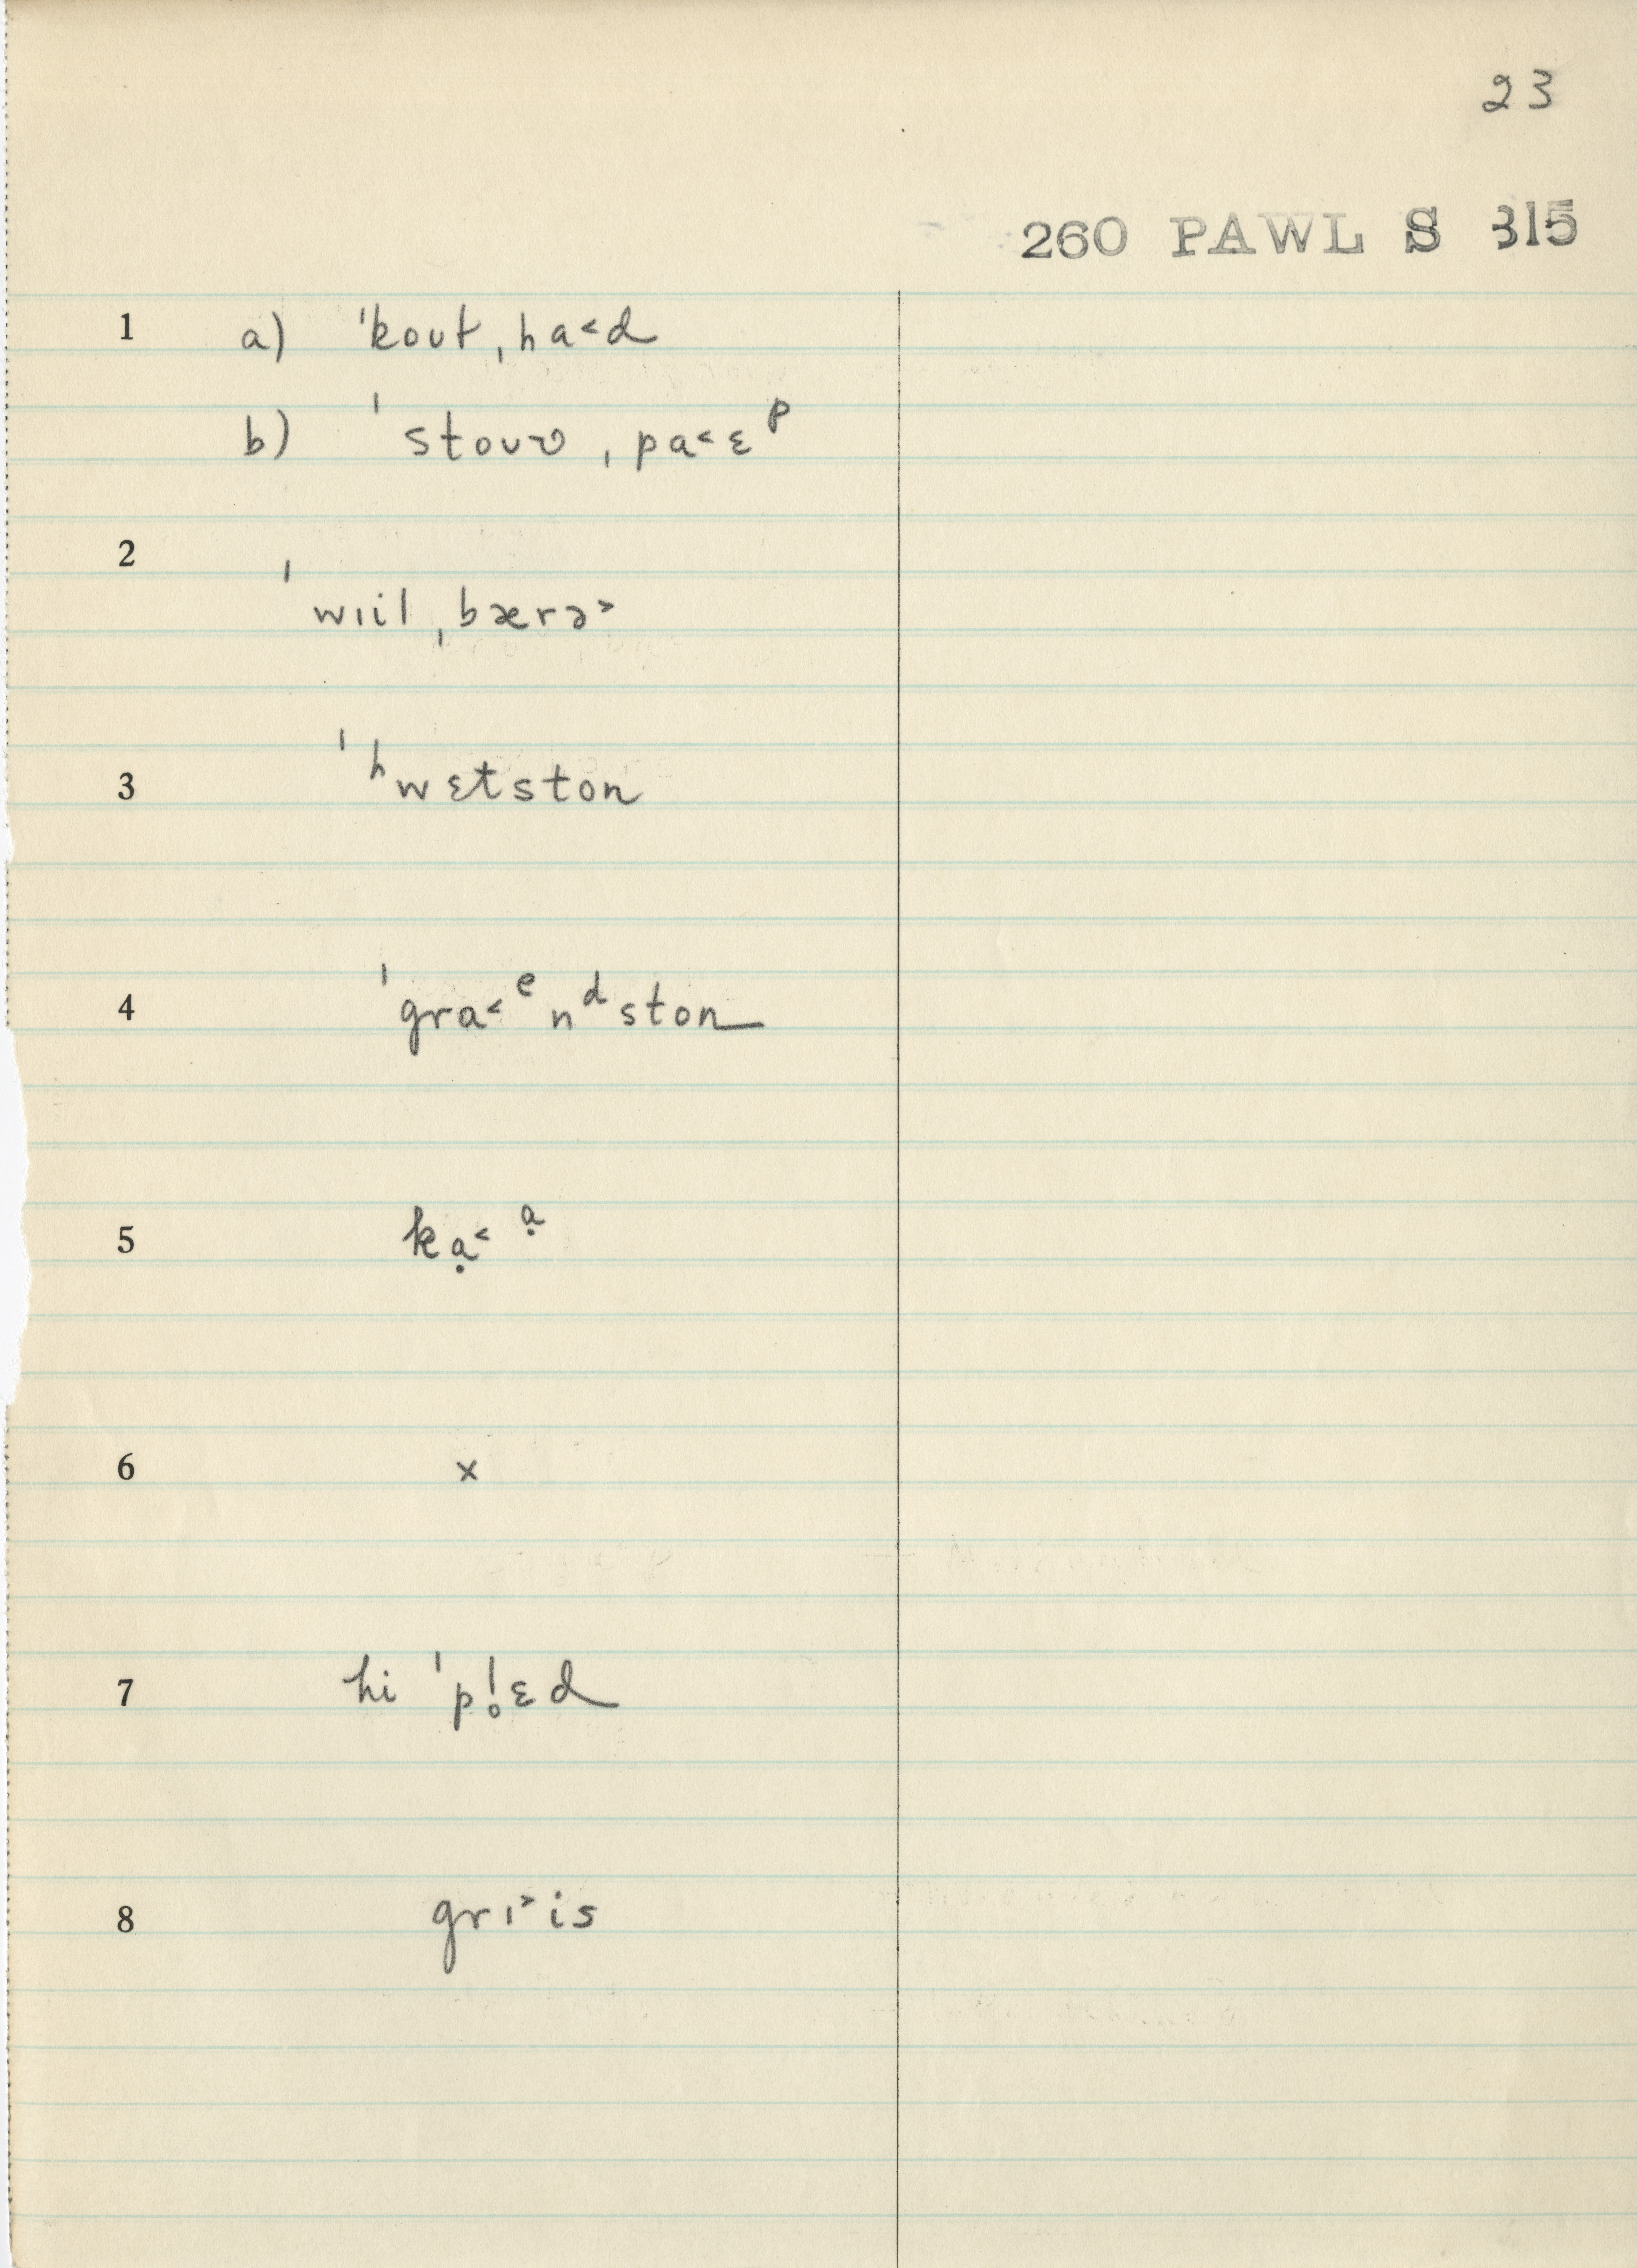 23
260 PAWL S 315
1 a) ˈkoʊt ˌha˂d
b) ˈstoʊʋ ˌpa˂ɛᵖ
2 ˈwɪil ˌbærə˃
3 ˈʰwɛtston
4 ˈgra˂ᵉnᵈston
5 kạ˂ ᵃ̣
6 x
7 hi ˈpl̥ɛd
8 grɪ˃is